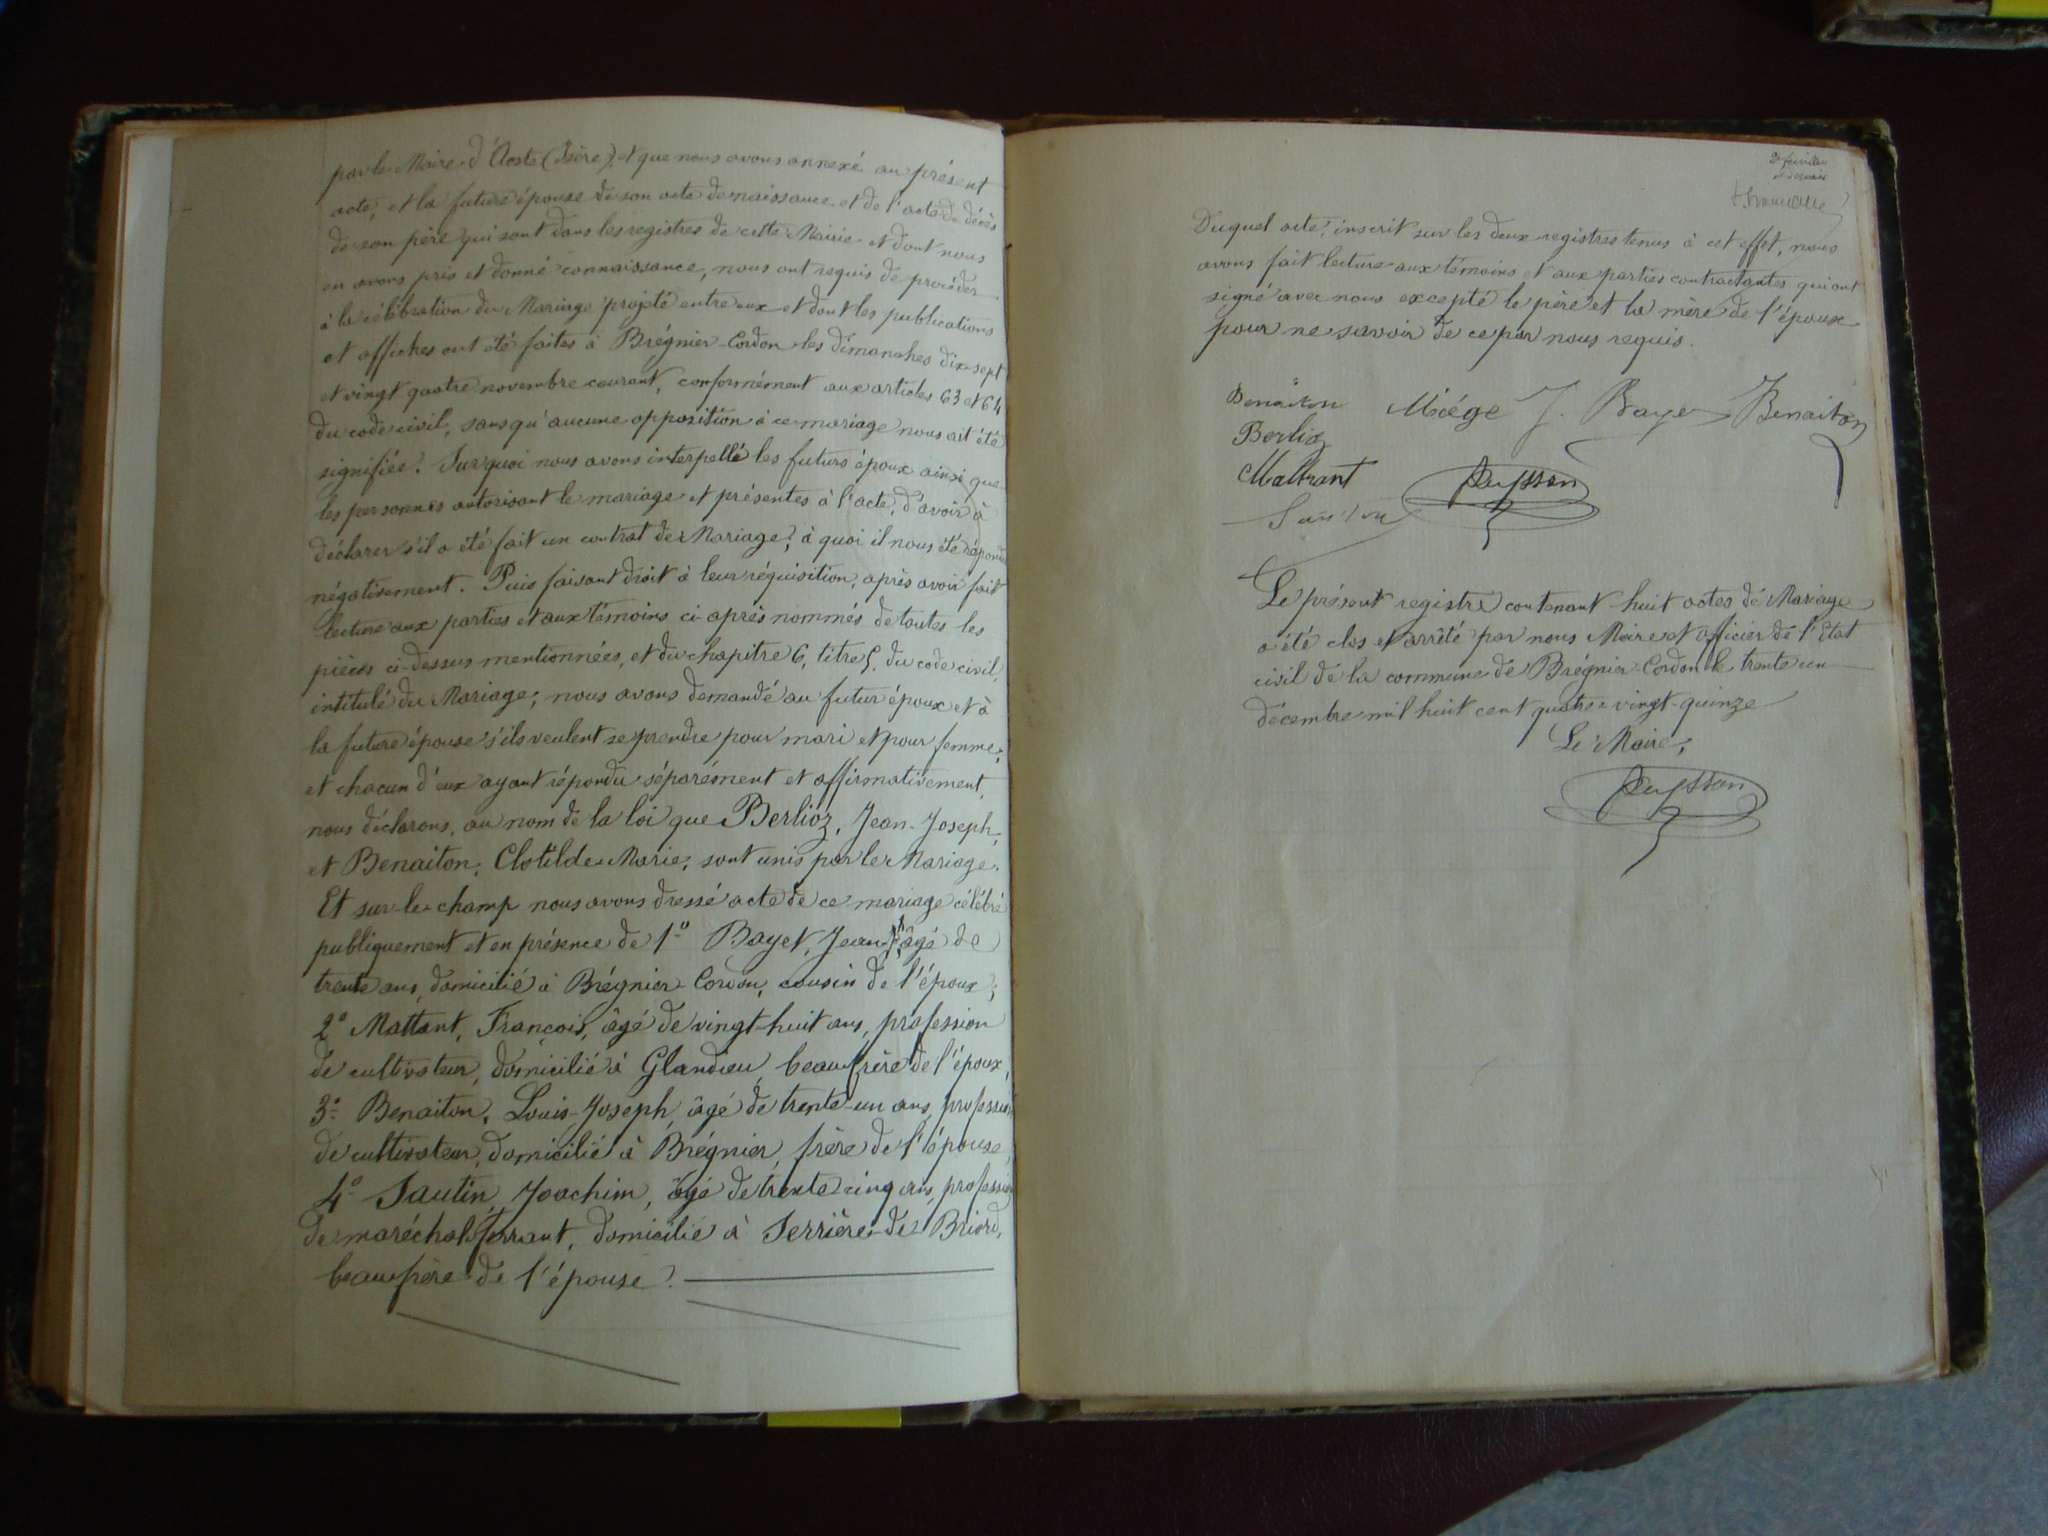 par le Maire d'Aoste (Isère), et que nous avons annexé au présent
acte, et la future épouse de son acte de naissance et de l'acte de décès
de son père qui sont dans les registres de cette Mairie et dont nous
en avons pris et donné connaissance, nous ont requis de procéder
à la célébration du Mariage projeté entre eux et dont les publications
et affiches ont été faites à Brégnier-Cordon les dimanches dix-sept
et vingt quatre novembre courant, conformément aux articles 63 et 64
du code civil, sans qu'aucune opposition à ce mariage nous ait été
signifiée. Sur quoi nous avons interpellé les futurs époux ainsi que
les personnes autorisant le mariage et présentes à l'acte, d'avoir à
déclarer s'il a été fait un contrat de Mariage, à quoi il nous été répondu
négativement. Puis faisant droit à leur réquisition, après avoir fait
lecture aux parties et aux témoins ci-après nommés de toutes les
pièces ci-dessus mentionnées, et du chapitre 6, titre 5, du code civil,
intitulé du Mariage; nous avons demandé au futur époux et à
la future épouse s'ils veulent se prendre pour mari et pour femme;
et chacun d'eux ayant répondu séparément et affirmativement,
nous déclarons, au nom de la loi que Berlioz, Jean-Joseph,
et Benaiton, Clotilde-Marie, sont unis par le Mariage.
Et sur-le-champ nous avons dressé acte de ce mariage célébré
publiquement et en présence de 1° Bayet, Jean âgé de
trente ans, domicilié à Brégnier-Cordon, cousin de l'époux;
2° Mattant, François, âgé de vingt-huit ans, profession
de cultivateur, domicilié à Glandieu, beau-frère de l'époux,
3° Benaiton, Louis-Joseph, âgé de trente-un ans, profession
de cultivateur, domicilié à Brégnier, frère de l'épouse,
4° Sautin, Joachim, âgé de trente-cinq ans, profession
de maréchal-ferrant, domicilié à Serrières-de-Briord,
beau-frère de l'épouse.
Duquel acte, inscrit sur les deux registres tenus à cet effet, nous
avons fait lecture aux témoins et aux parties contractantes qui ont
signé avec nous excepté le père et la mère de l'époux
pour ne savoir de ce par nous requis.
Benaiton Miége J. Bayet Benaiton
Berlioz
Mattrant Peysson
Le présent registre contenant huit actes de Mariage
a été clos et arrêté par nous Maire et officier de l'Etat
civil de la commune de Brégnier-Cordon le trente un
décembre mil huit cent quatre-vingt-quinze
Le Maire,
Peysson